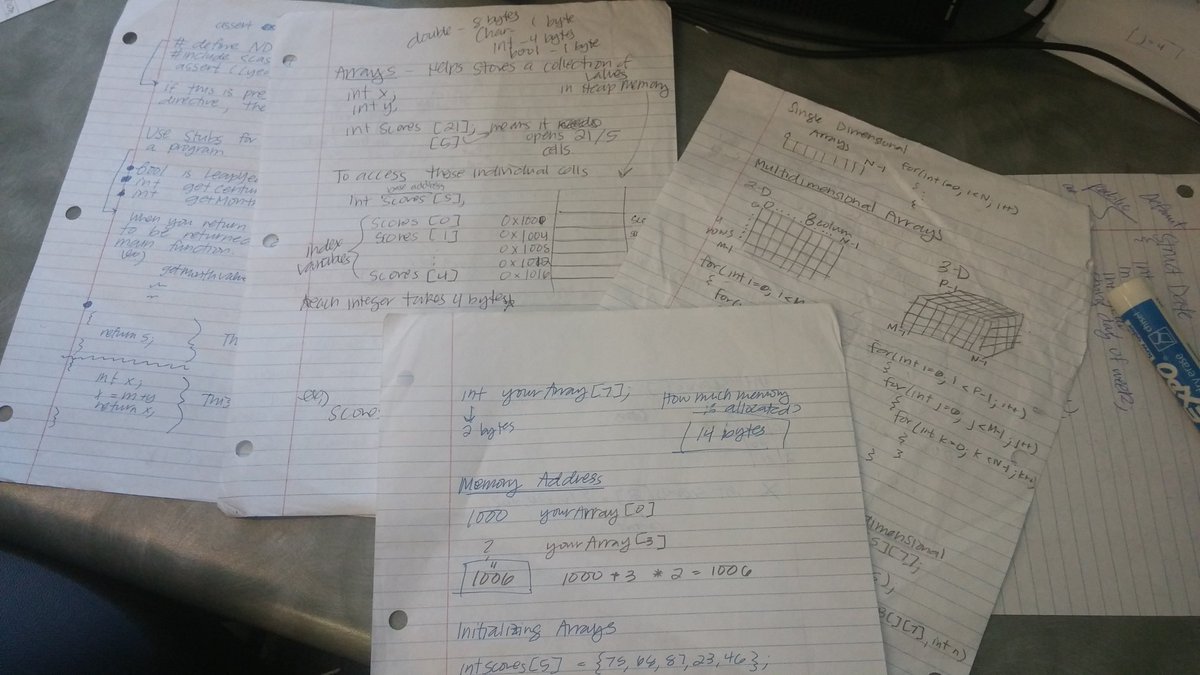 assert
# define ND
#include <cas
assert ((yea
If this is pre
directive, the
Use stubs for
a program
bool is Leapyea
int getcentur
int getMont
When you return
to be returned
main function.
getMonthvalue
{
return 5;
}
Th
{
int x;
return x;
}
This
double - 8 bytes
Char - 1 byte
int - 4 bytes
bool - 1 byte
Arrays - Helps stores a collection of
values
in Heap Memory
int x,
int y,
int scores [21], means it
[5] opens 21/5
cells
To access those individual cells
base address
Int Scores [5],
Index
Variables
Scores [0] 0x1000
Scores [1] 0x1004
0x1008
: 0x1012
Scores [4] 0x1016
Each integer takes 4 bytes
eg)
Score
Single Dimensional
Arrays
0 N-1
for(int i=0, i<N, i++)
{
}
Multidimensional Arrays
2-D
0,0 column N-1
rows
M-1
for(int i=0, i<M
{
for(
3-D
P-1
M-1
N-1
for(int i=0, i<P-1; i++)
{
for(int j=0, j<M-1; j++)
{
for(int k=0; k<N-1; k++)
{
}
}
dimensional
5][7];
5),
B[][7], int n)
int yourArray [7];
↓
2 bytes
How much memory
is allocated?
14 bytes
Memory Address
1000 yourArray [0]
? yourArray [3]
"
1006 1000 + 3 * 2 = 1006
Initializing Arrays
int scores[5] = {75, 66, 87, 23, 46};
Default
struct Date
{
int
erase
EXPO